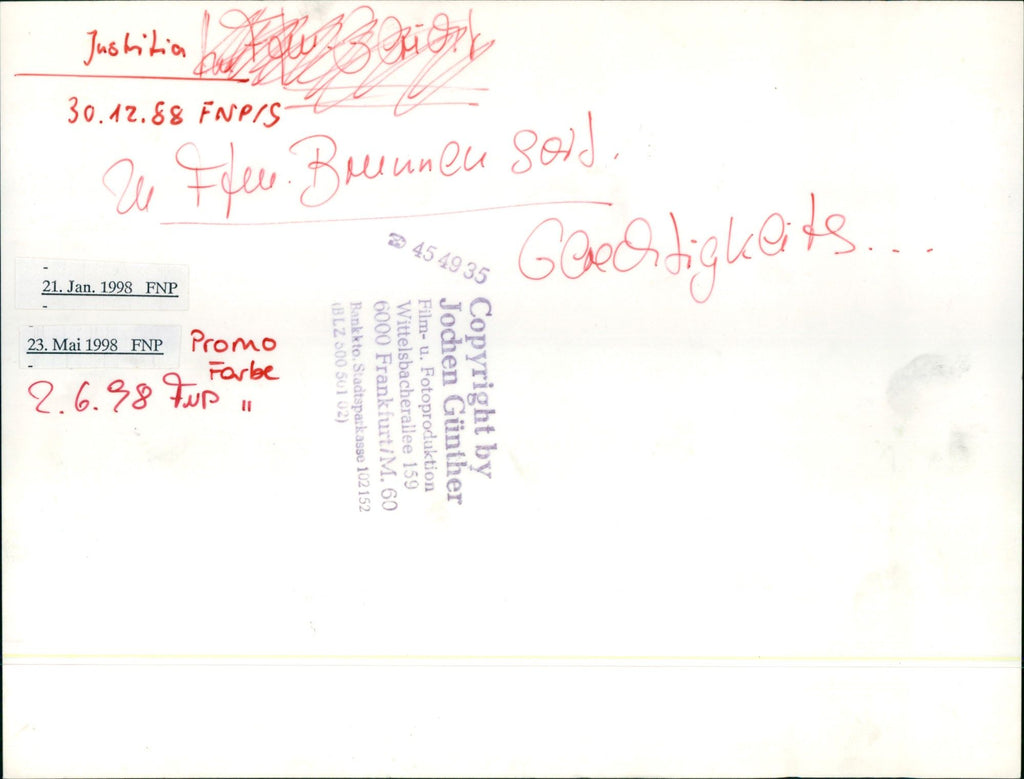 Justitia
30.12.88 FNP/S
zu Ffm. Brunnen
Gerechtigkeits....
21. Jan. 1998 FNP
23. Mai 1998 FNP
Promo
Farbe
2.6.98 FNP "
☎ 454935
Copyright by
Jochen Günther
Film- u. Fotoproduktion
Wittelsbacherallee 159
6000 Frankfurt/M. 60
Bankkto. Stadtsparkasse 102152
(BLZ 500 501 02)